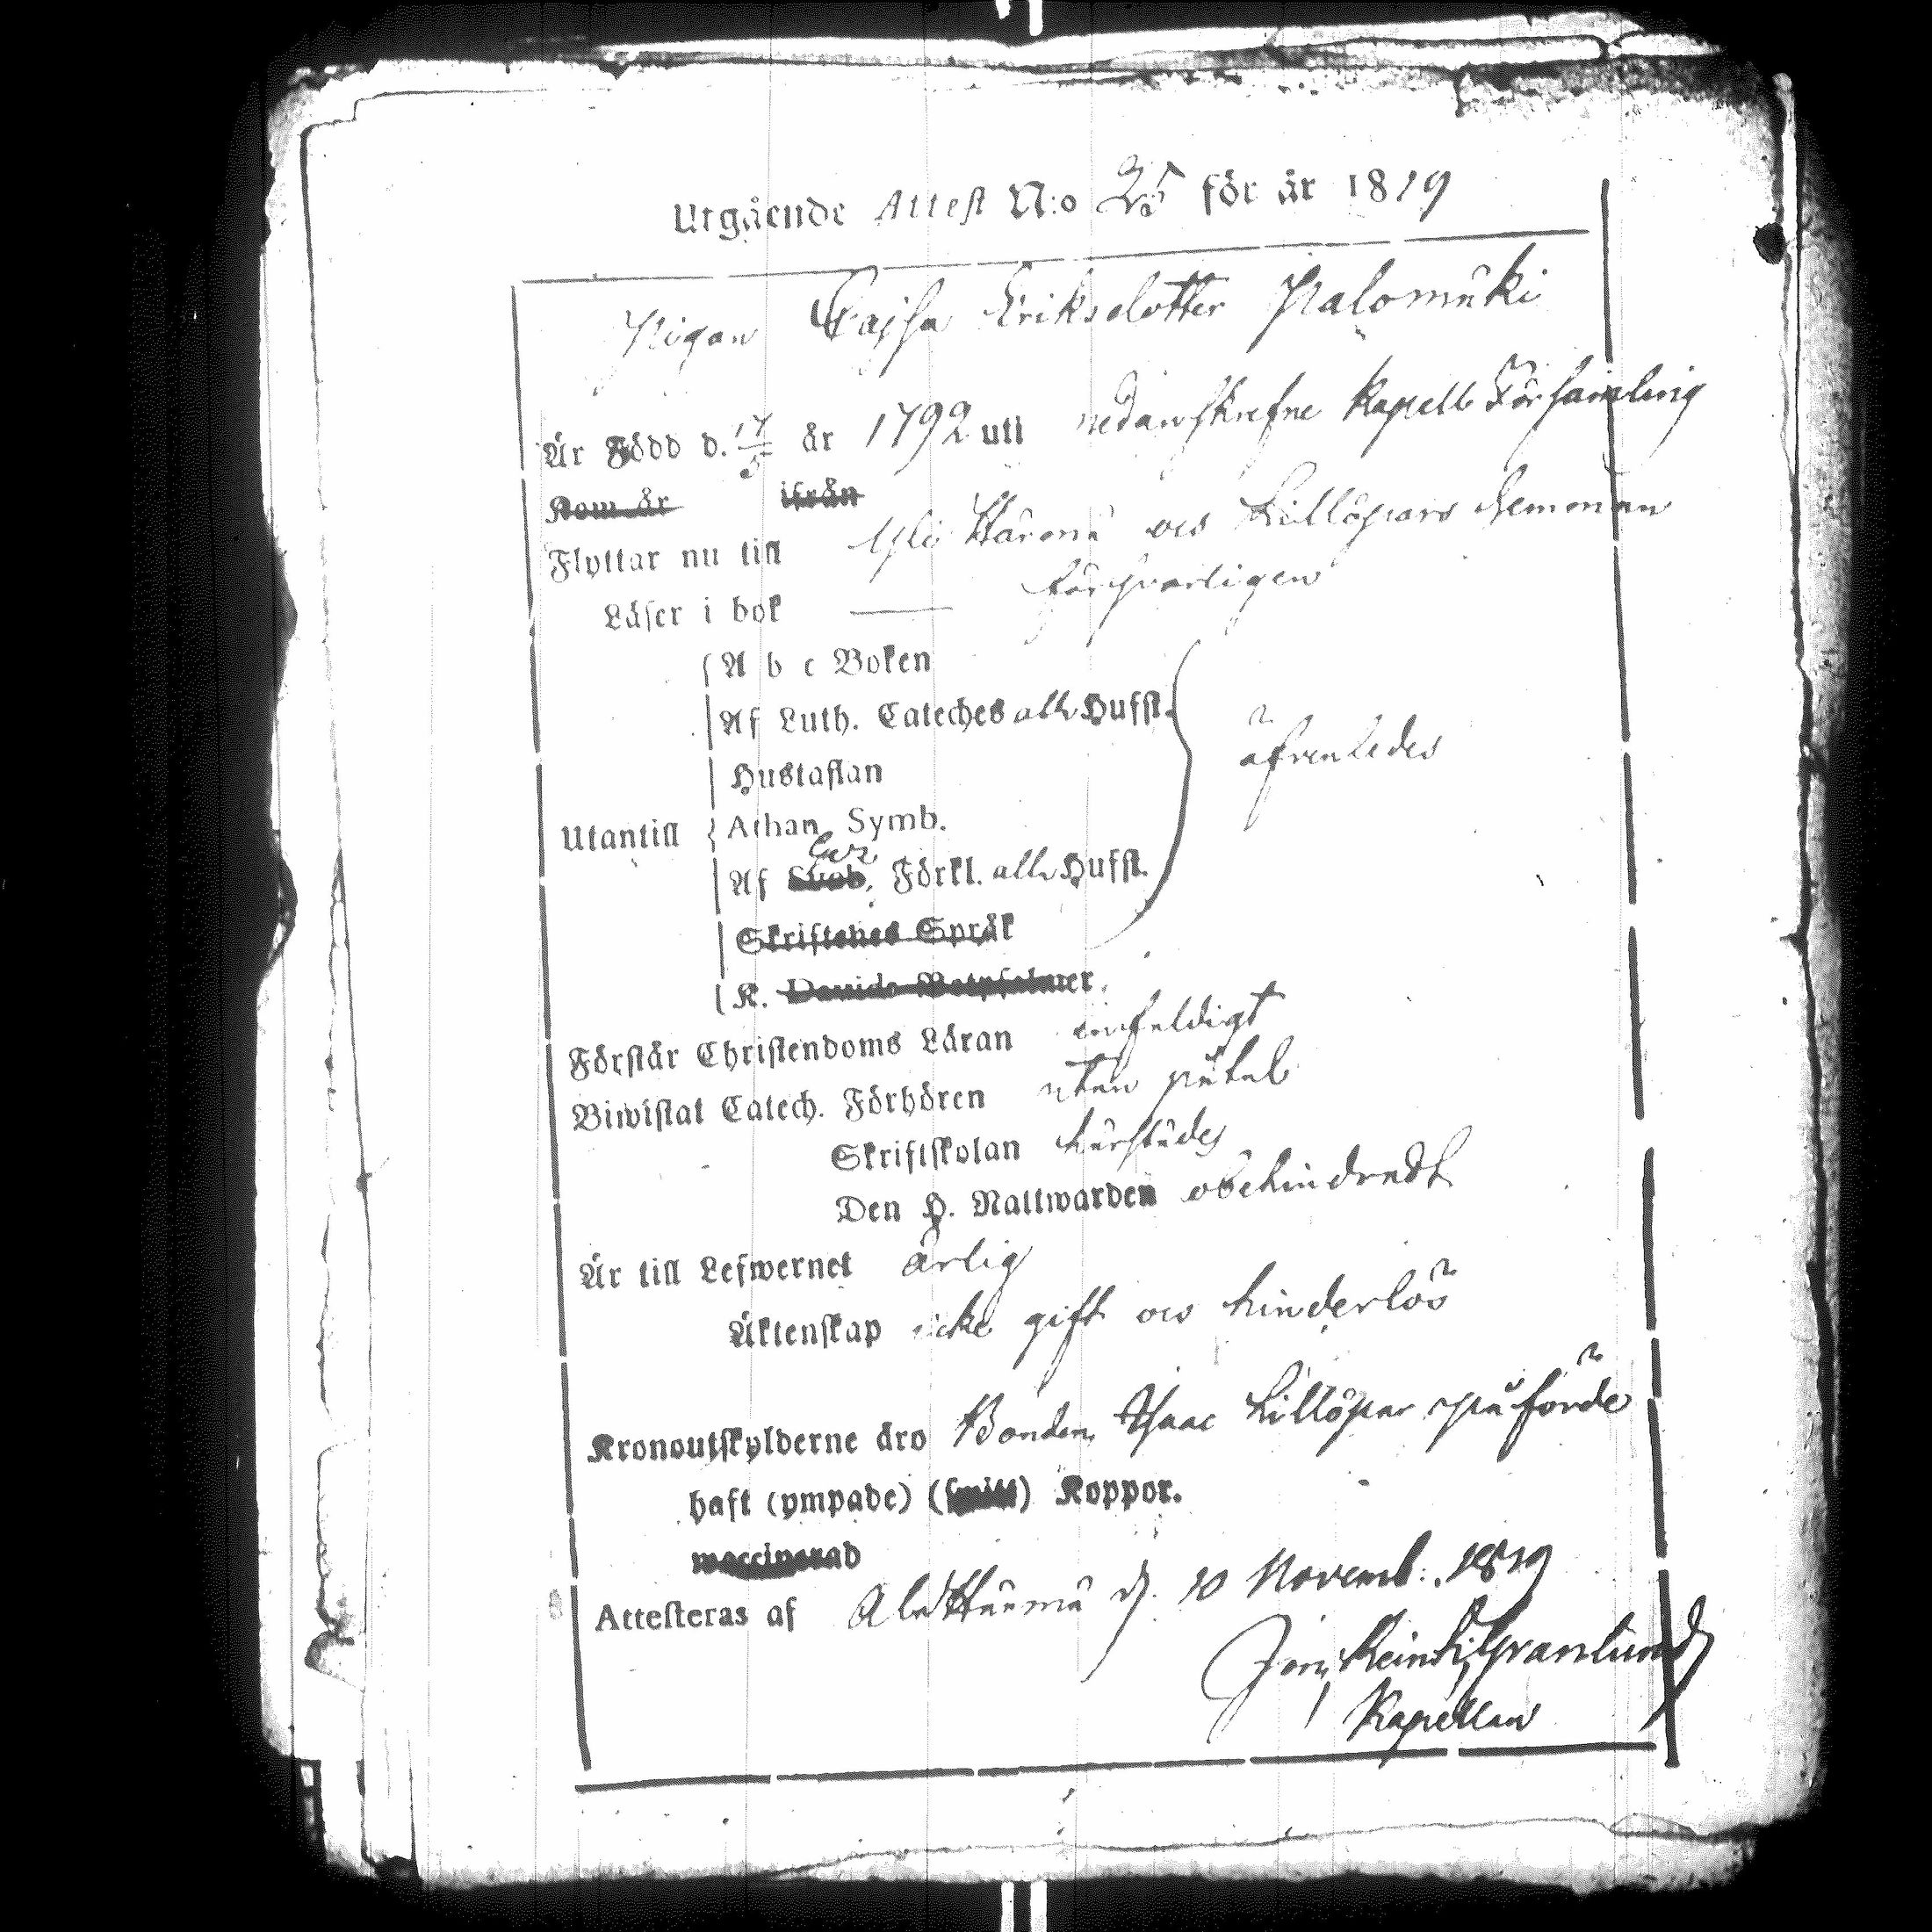 Utgående Attest N:o 25 för år 1819
Pigan Cajsa Eriksdotter Palomäki
Är Född d. 17/5 år 1792 uti nedanskrefne Kapell Församling
Kom år ifrån
Flyttar nu till Yli Härmä och Lillöpars hemman
Läser i bok — försvarligen
A b c Boken
Af Luth. Cateches alla Hufst.
äfvenledes
Hustaflan
Utantill Athan. Symb.
Af Sveb. Förkl. alla Hufst.
Skriftenes Språk
K. Davids Botpsalmer.
Förstår Christendoms Läran enfaldigt
Biwistat Catech. Förhören utan påtal
Skriftskolan härstädes
Den H. Nattwarden obehindradt
Är till Lefwernet ärlig
Äktenskap icke gift och hinderlös
Kronoutskylderne äro Bonden Isaac Lillöpar påförde
haft (ympade) (smitt) Koppor.
waccinerad
Attesteras af Ala Härmä d. 10 Novemb: 1819
Granlund
Kapellan